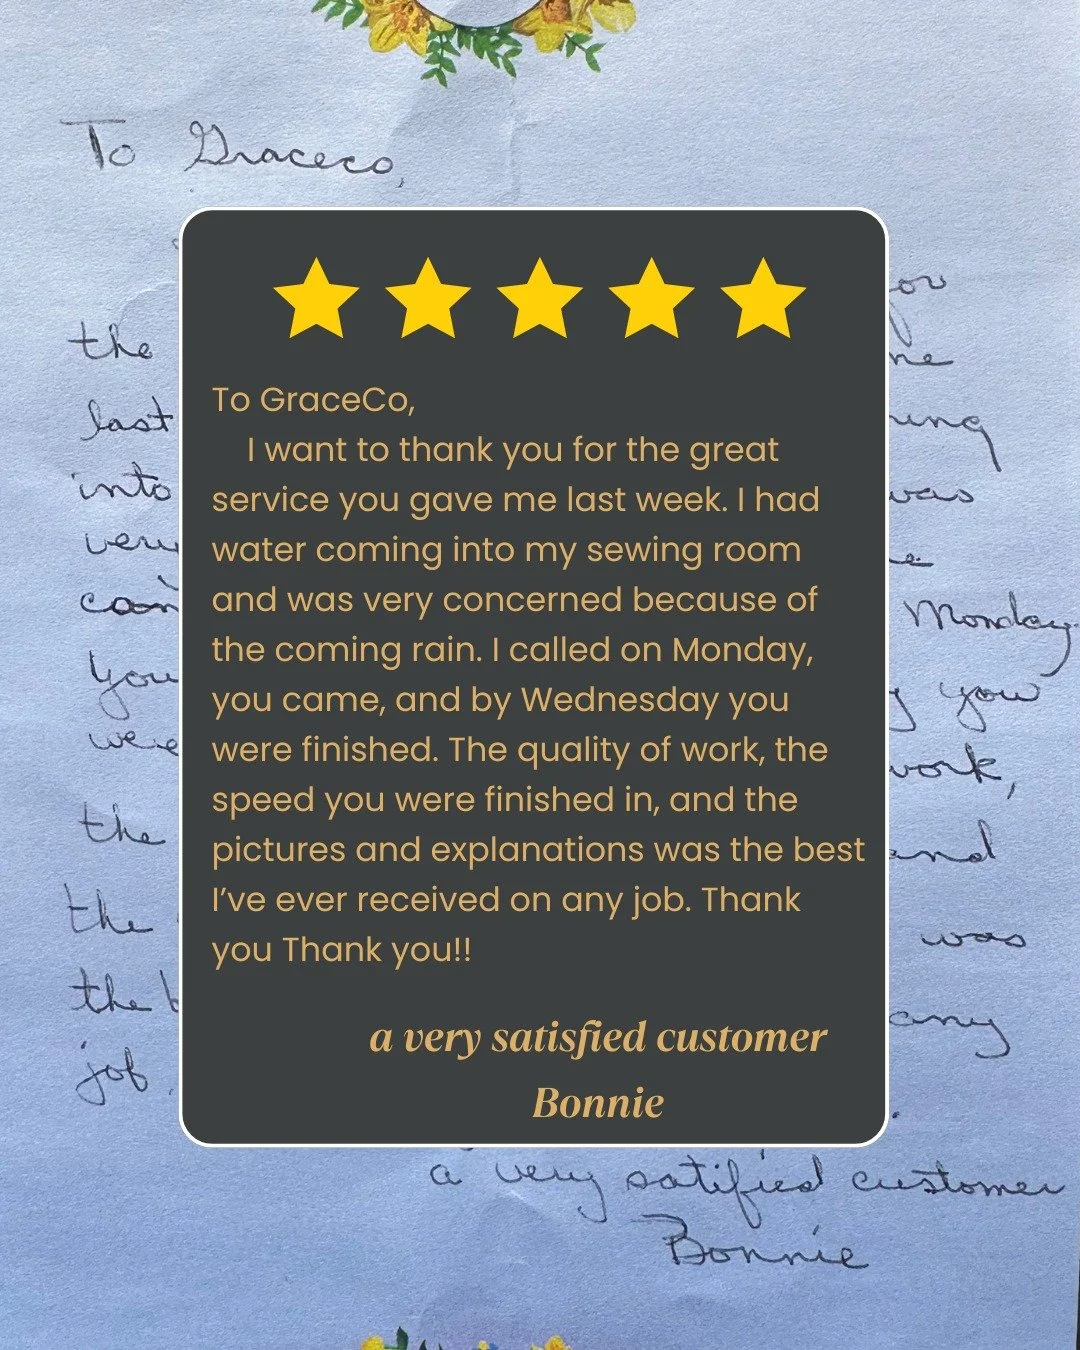 To Graceco,
for
the
me
last
into
was
very
Monday
you
you
were
work,
the
and
the
was
the
any
job
To GraceCo,
I want to thank you for the great
service you gave me last week. I had
water coming into my sewing room
and was very concerned because of
the coming rain. I called on Monday,
you came, and by Wednesday you
were finished. The quality of work, the
speed you were finished in, and the
pictures and explanations was the best
I’ve ever received on any job. Thank
you Thank you!!
a very satisfied customer
Bonnie
a very satified customer
Bonnie